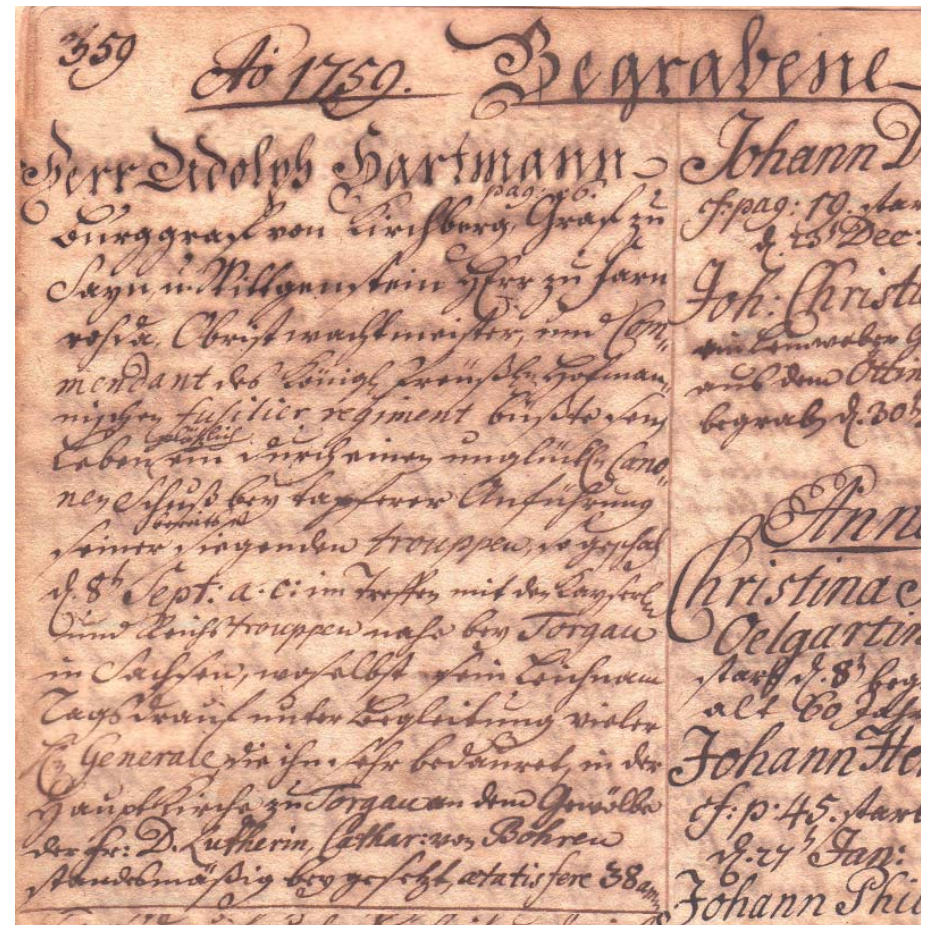 359
Aõ 1759. Begrabene
Herr Adolph Hartmann
pag: 26.
Burggraf von Kirchberg, Graf zu
Sayn u. Wittgenstein Herr zu Farn
roda, Obristwachtmeister, und Com„
mendant des Königl. Preüßln Hofman„
nischen fusilier regiment büßte sein
plötzlich
Leben ein durch einen unglückln Cano„
nen Schuß bey tapferer Anführung
bereits
seiner siegenden trouppen, so geschah
d. 8t Sept: a. c: im Treffen mit den Kayserln
und Reichstrouppen nahe bey Torgau
in Sachsen, woselbst sein Leichnam
Tags drauf unter Begleitung vieler
Generale, die ihn sehr bedauret, in der
Hauptkirche zu Torgau an dem Gewölbe
der Fr: D. Lutherin, Cathar: von Bohren
standesmäßig beygesetzt, ætatis fere 38 ann
Johann D
cf: pag: 19. star
d. 23t Dec:
Joh: Christ
ein Leinweber
aus dem Otti
begrab d. 30t
Ann
Christina
Oelgartin
starb d. 8t begr
alt 60 Jahr
Johann He
cf: p: 45. starb
d. 27t Jan:
Johann Phi